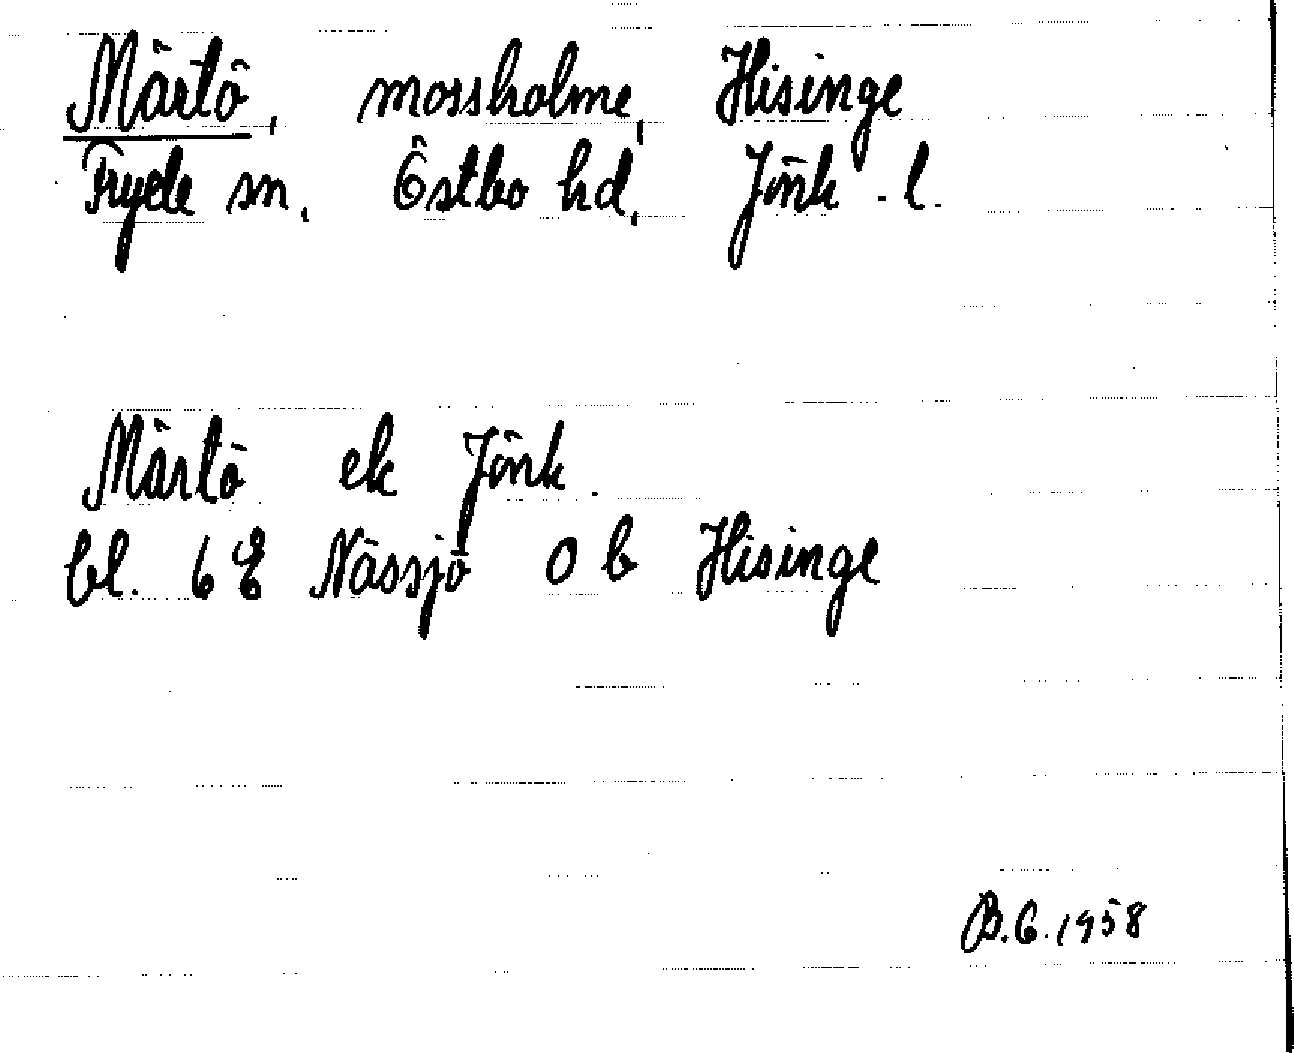 Märtö, mossholme, Hisinge
Fryele sn, Östbo hd, Jönk.l.
Märtö ek Jönk.
bl. 6 E Nässjö 0 b Hisinge
B.G. 1958